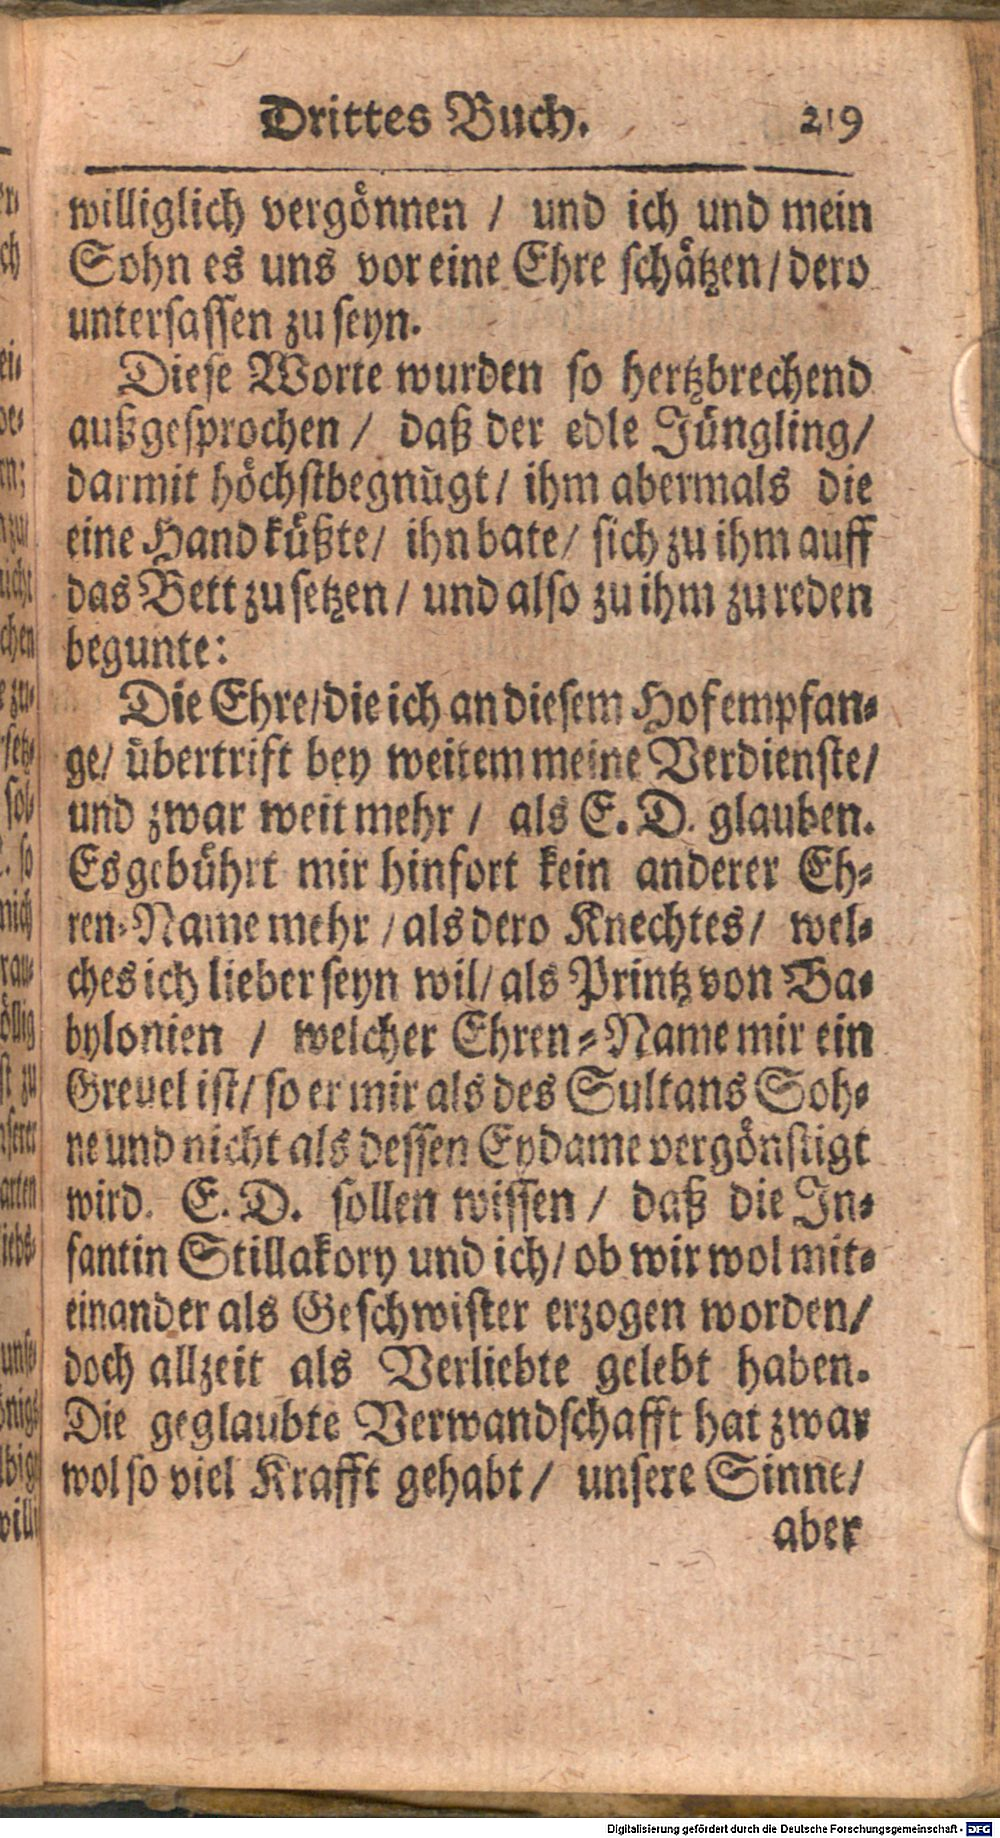 Drittes Buch. 219
williglich vergönnen / und ich und mein
Sohn es uns vor eine Ehre schätzen / dero
untersassen zu seyn.
Diese Worte wurden so hertzbrechend
außgesprochen / daß der edle Jüngling /
darmit höchstbegnügt / ihm abermals die
eine Hand küßte / ihn bate / sich zu ihm auff
das Bett zu setzen / und also zu ihm zu reden
begunte:
Die Ehre / die ich an diesem Hof empfan-
ge / übertrift bey weitem meine Verdienste /
und zwar weit mehr / als E. D. glauben.
Es gebührt mir hinfort kein anderer Eh-
ren-Name mehr / als dero Knechtes / wel-
ches ich lieber seyn wil / als Printz von Ba-
bylonien / welcher Ehren-Name mir ein
Greuel ist / so er mir als des Sultans Soh-
ne und nicht als dessen Eydame vergönstigt
wird. E. D. sollen wissen / daß die In-
fantin Stillakory und ich / ob wir wol mit-
einander als Geschwister erzogen worden /
doch allzeit als Verliebte gelebt haben.
Die geglaubte Verwandschafft hat zwar
wol so viel Krafft gehabt / unsere Sinne /
aber
Digitalisierung gefördert durch die Deutsche Forschungsgemeinschaft - DFG